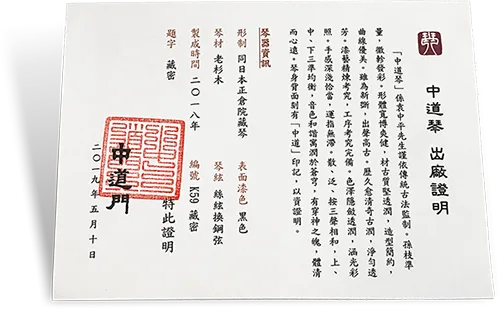 中道琴 出廠證明
「中道琴」係袁中平先生謹依傳統古法監制。孫枝準
量，徽軫發彩。形體寬博爽健，材古質堅透潤，造型簡約，
曲線優美。雖為新斲，出聲高古。歷久愈清奇古潤，淨勻透
芳。漆藝精煉考究，工序考究完備。色澤隱斂透潤，涵光彩
照。手感深淺恰當，運指無滯。散、泛、按三聲相和，上、
中、下三準均衡，音色和諧寓潤於蒼穹、有穿神之魄，體清
而心遠。琴身背面刻有「中道」印記，以資證明。
琴器資訊
形制 同日本正倉院藏琴 表面漆色 黑色
琴材 老杉木 琴絃 絲絃換鋼弦
製成時間 二〇一八年 編號 K59 藏密
題字 藏密
特此證明
中道門
二〇一九年五月十日